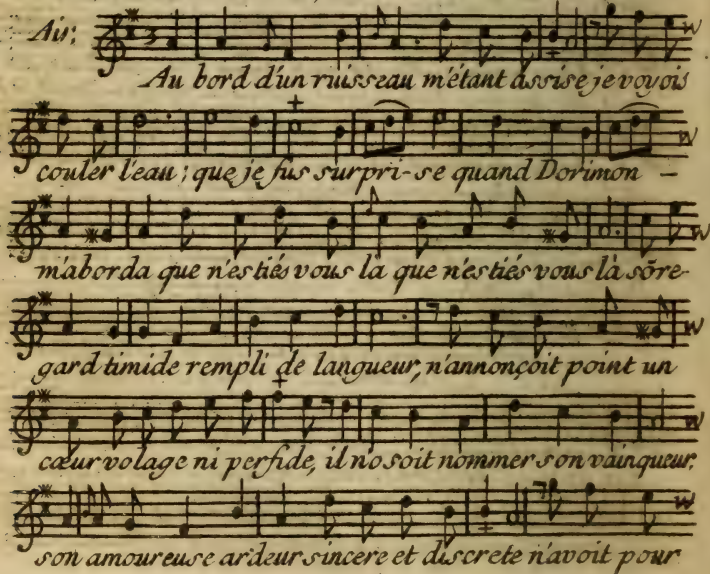 Air:
Au bord d'un ruisseau m'étant assise je voyois
couler l'eau; que je fus surpri-se quand Dorimon -
m'aborda que n'estiés vous la que n'estiés vous là sõ re-
gard timide rempli de langueur, n'annonçoit point un
cœur volage ni perfide, il n'osoit nommer son vainqueur.
son amoureuse ardeur sincere et discrete n'avoit pour